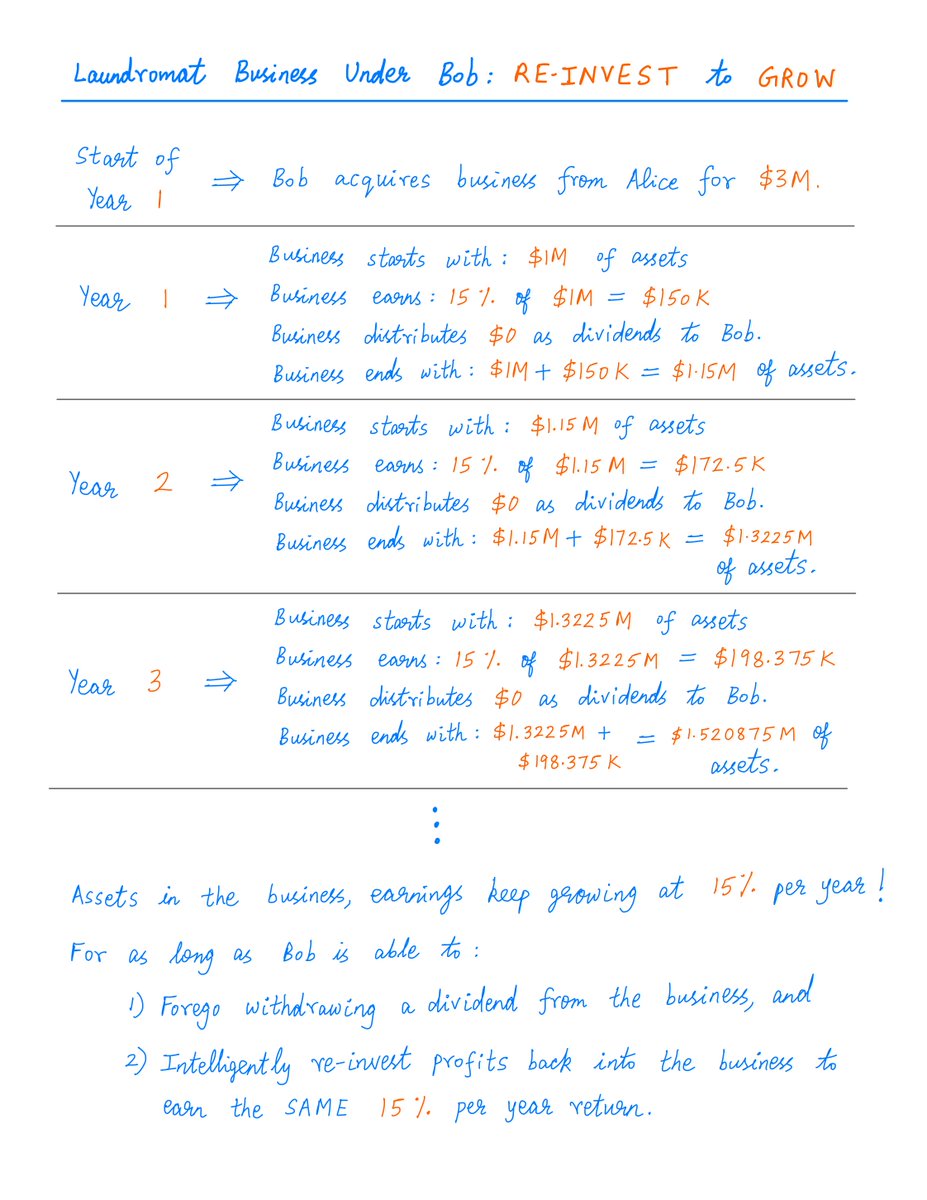 Laundromat Business Under Bob: RE-INVEST to GROW
Start of
Year 1
⇒ Bob acquires business from Alice for $3M.
Year 1 ⇒
Business starts with: $1M of assets
Business earns: 15% of $1M = $150K
Business distributes $0 as dividends to Bob.
Business ends with: $1M + $150K = $1.15M of assets.
Year 2 ⇒
Business starts with: $1.15M of assets
Business earns: 15% of $1.15M = $172.5K
Business distributes $0 as dividends to Bob.
Business ends with: $1.15M + $172.5K = $1.3225M
of assets.
Year 3 ⇒
Business starts with: $1.3225M of assets
Business earns: 15% of $1.3225M = $198.375K
Business distributes $0 as dividends to Bob.
Business ends with: $1.3225M + = $1.520875M of
$198.375K assets.
Assets in the business, earnings keep growing at 15% per year!
For as long as Bob is able to:
1) Forego withdrawing a dividend from the business, and
2) Intelligently re-invest profits back into the business to
earn the SAME 15% per year return.